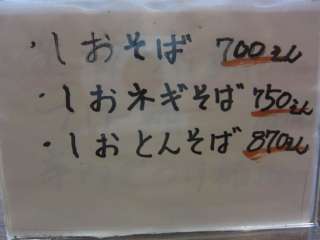 ・しおそば 700えん
・しおネギそば 750えん
・しおとんそば 870えん